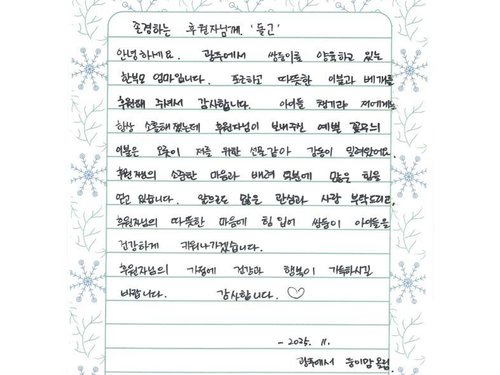 존경하는 후원자님께. '들고'
안녕하세요. 광주에서 쌍둥이를 양육하고 있는
한부모 엄마입니다. 포근하고 따뜻한 이불과 베개를
후원해 주셔서 감사합니다. 아이들 챙기라 저에게는
항상 소홀해 졌는데 후원자님이 보내주신 예쁜 꽃무늬
이불은 오롯이 저를 위한 선물같아 감동이 밀려왔어요
후원자님의 소중한 마음과 배려 덕분에 많은 힘을
얻고 있습니다. 앞으로도 많은 관심과 사랑 부탁드리고,
후원자님의 따뜻한 마음에 힘입어 쌍둥이 아이들을
건강하게 키워나가겠습니다.
후원자님의 가정에 건강과 행복이 가득하시길
바랍니다. 감사합니다. ♡
- 2025. 11.
광주에서 둥이맘 올림.